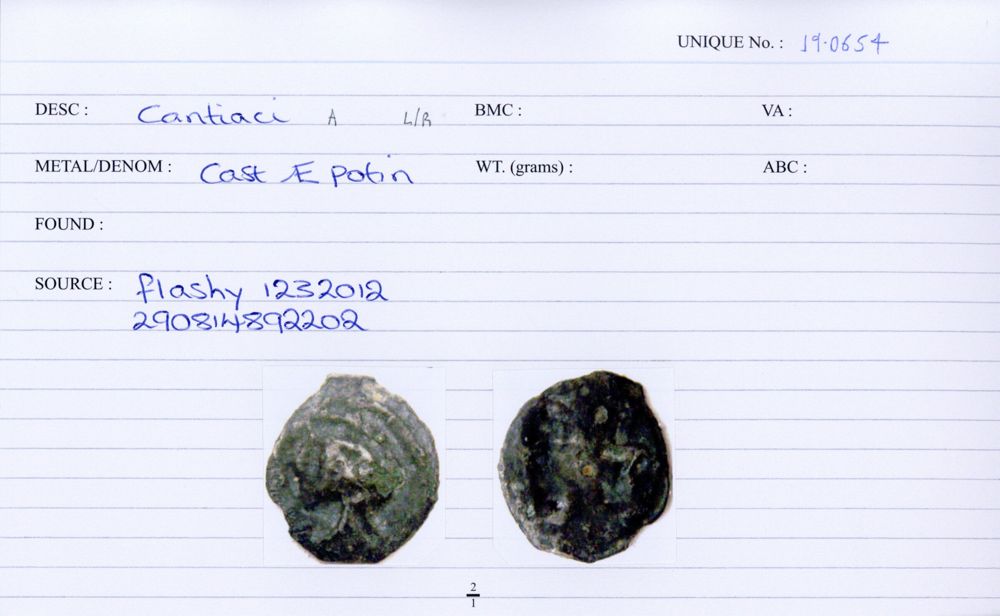 UNIQUE No. : 19.0654
DESC : Cantiaci A L/R BMC : VA :
METAL/DENOM : Cast Æ Potin WT. (grams) : ABC :
FOUND :
SOURCE : flashy 1232012
290814892202
2
1